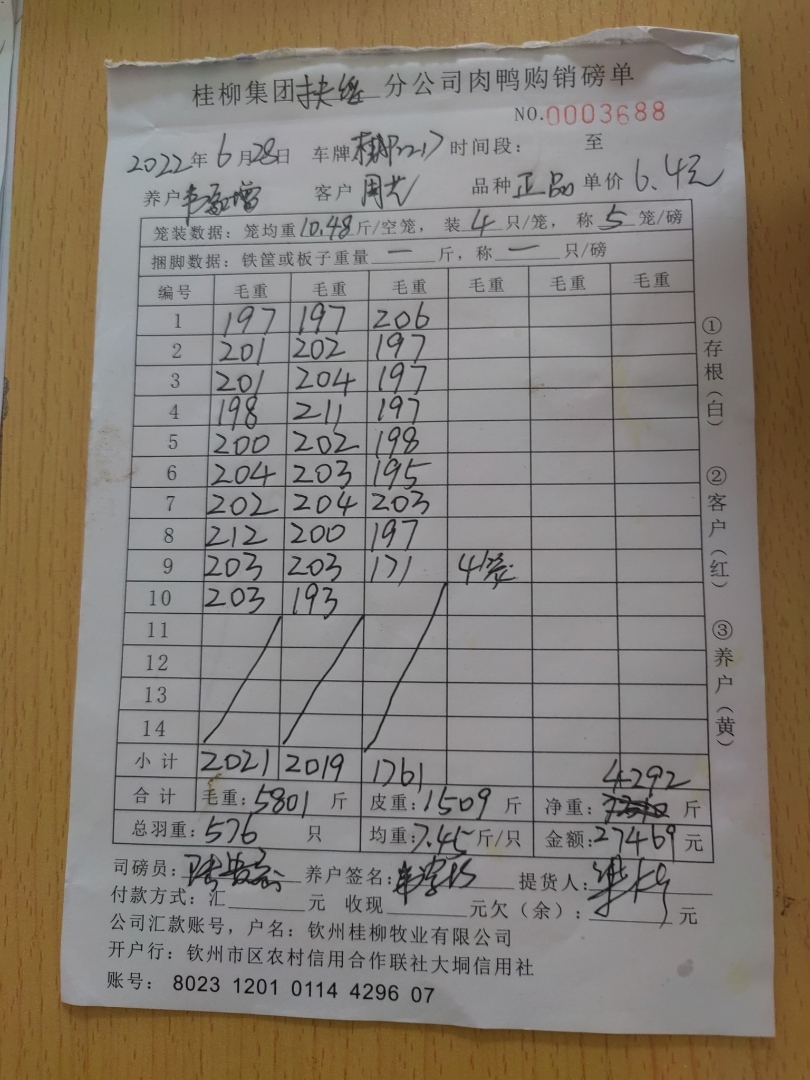 桂柳集团扶绥分公司肉鸭购销磅单
NO.0003688
2022年6月28日 车牌 2217 时间段： 至
养户 客户 周 品种 正品 单价 6.4元
笼装数据：笼均重10.48斤/空笼，装4只/笼，称5笼/磅
捆脚数据：铁筐或板子重量一斤，称一只/磅
编号 毛重 毛重 毛重 毛重 毛重 毛重
1 197 197 206
2 201 202 197
3 201 204 197
4 198 211 197
5 200 202 198
6 204 203 195
7 202 204 203
8 212 200 197
9 203 203 171 4笼
10 203 193
11
12
13
14
小计 2021 2019 1761
合计 毛重：5801斤 皮重：1509斤 净重：4292斤
总羽重：576只 均重：7.45斤/只 金额：27469元
司磅员： 养户签名： 提货人：
付款方式：汇 元 收现 元欠（余）： 元
公司汇款账号，户名：钦州桂柳牧业有限公司
开户行：钦州市区农村信用合作联社大垌信用社
账号： 8023 1201 0114 4296 07
①存根（白）
②客户（红）
③养户（黄）